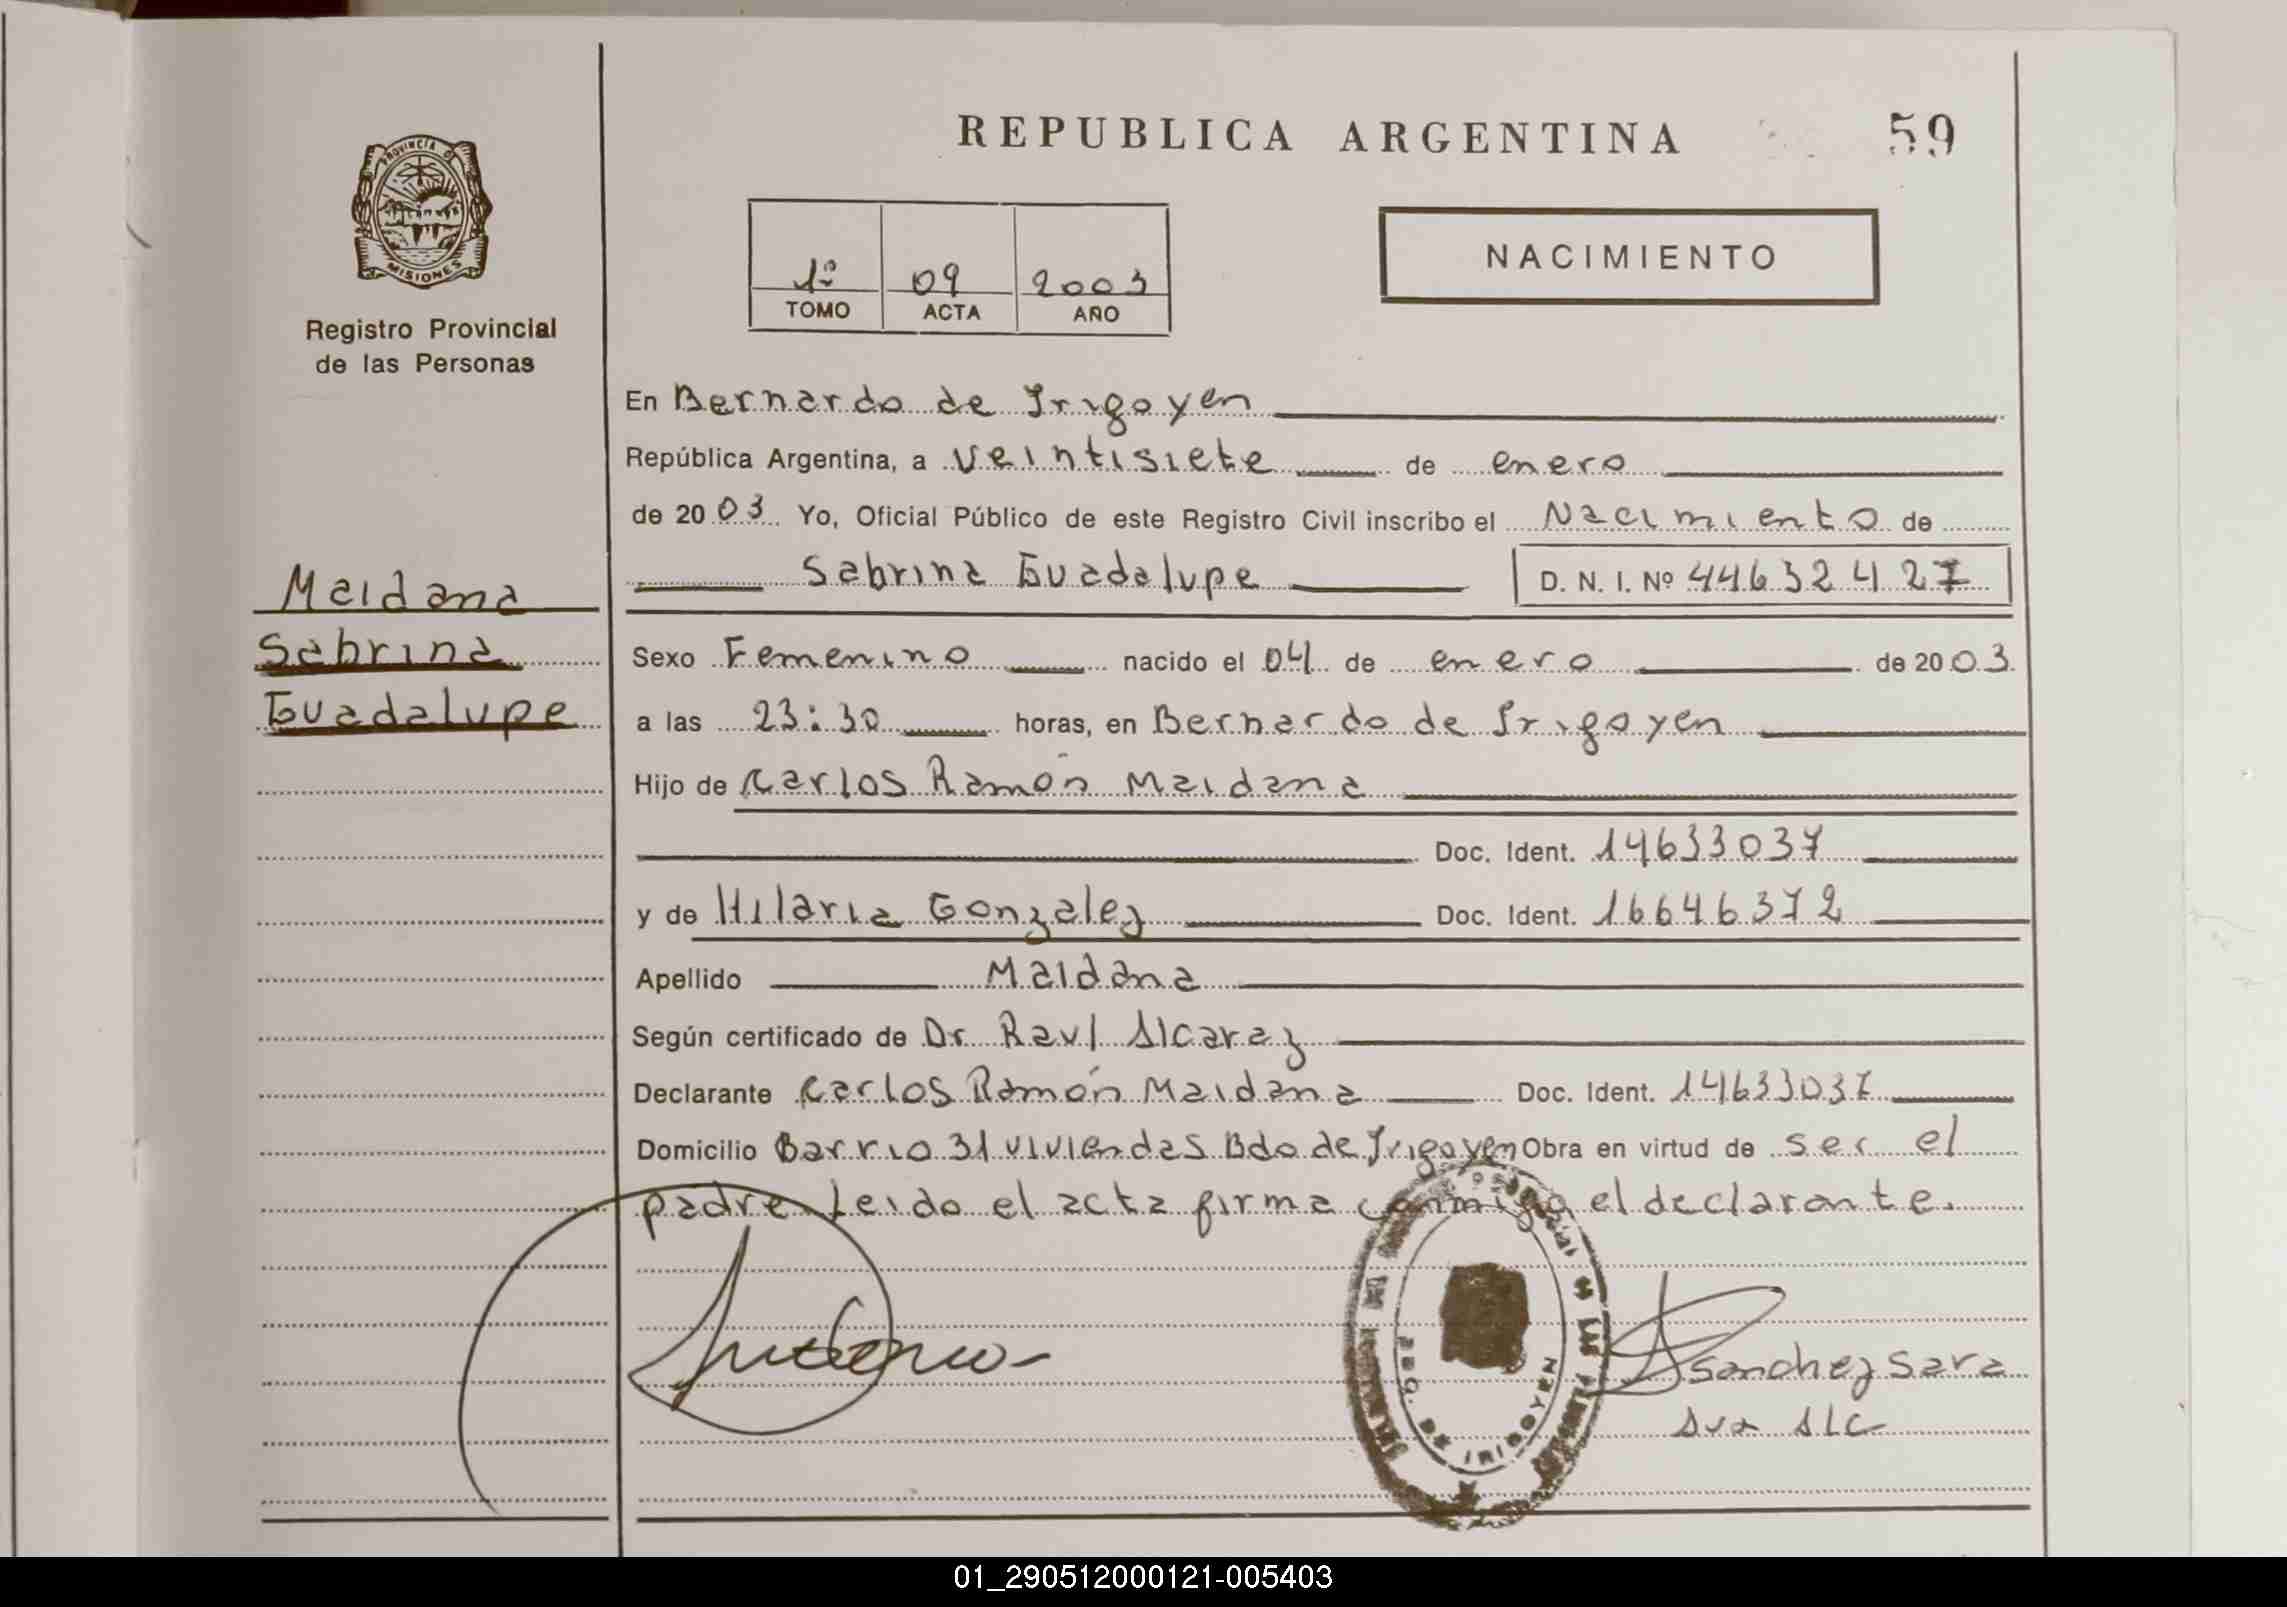 REPUBLICA ARGENTINA
59
PROVINCIA DE
MISIONES
Registro Provincial
de las Personas
1º 09 2003
TOMO ACTA AÑO
NACIMIENTO
En Bernardo de Irigoyen
República Argentina, a veintisiete de enero
de 2003 Yo, Oficial Público de este Registro Civil inscribo el Nacimiento de
Sabrina Guadalupe D. N. I. Nº 44632427
Maidana
Sabrina
Guadalupe
Sexo Femenino nacido el 04 de enero de 2003
a las 23:30 horas, en Bernardo de Irigoyen
Hijo de Carlos Ramón Maidana
Doc. Ident. 14633037
y de Hilaria Gonzalez Doc. Ident. 16646372
Apellido Maidana
Según certificado de Dr. Raul Alcaraz
Declarante Carlos Ramón Maidana Doc. Ident. 14633037
Domicilio Barrio 31 viviendas Bdo de Irigoyen Obra en virtud de ser el
padre leido el acta firma conmigo el declarante.
BDO. DE IRIGOYEN
Sanchez Sara
01_290512000121-005403